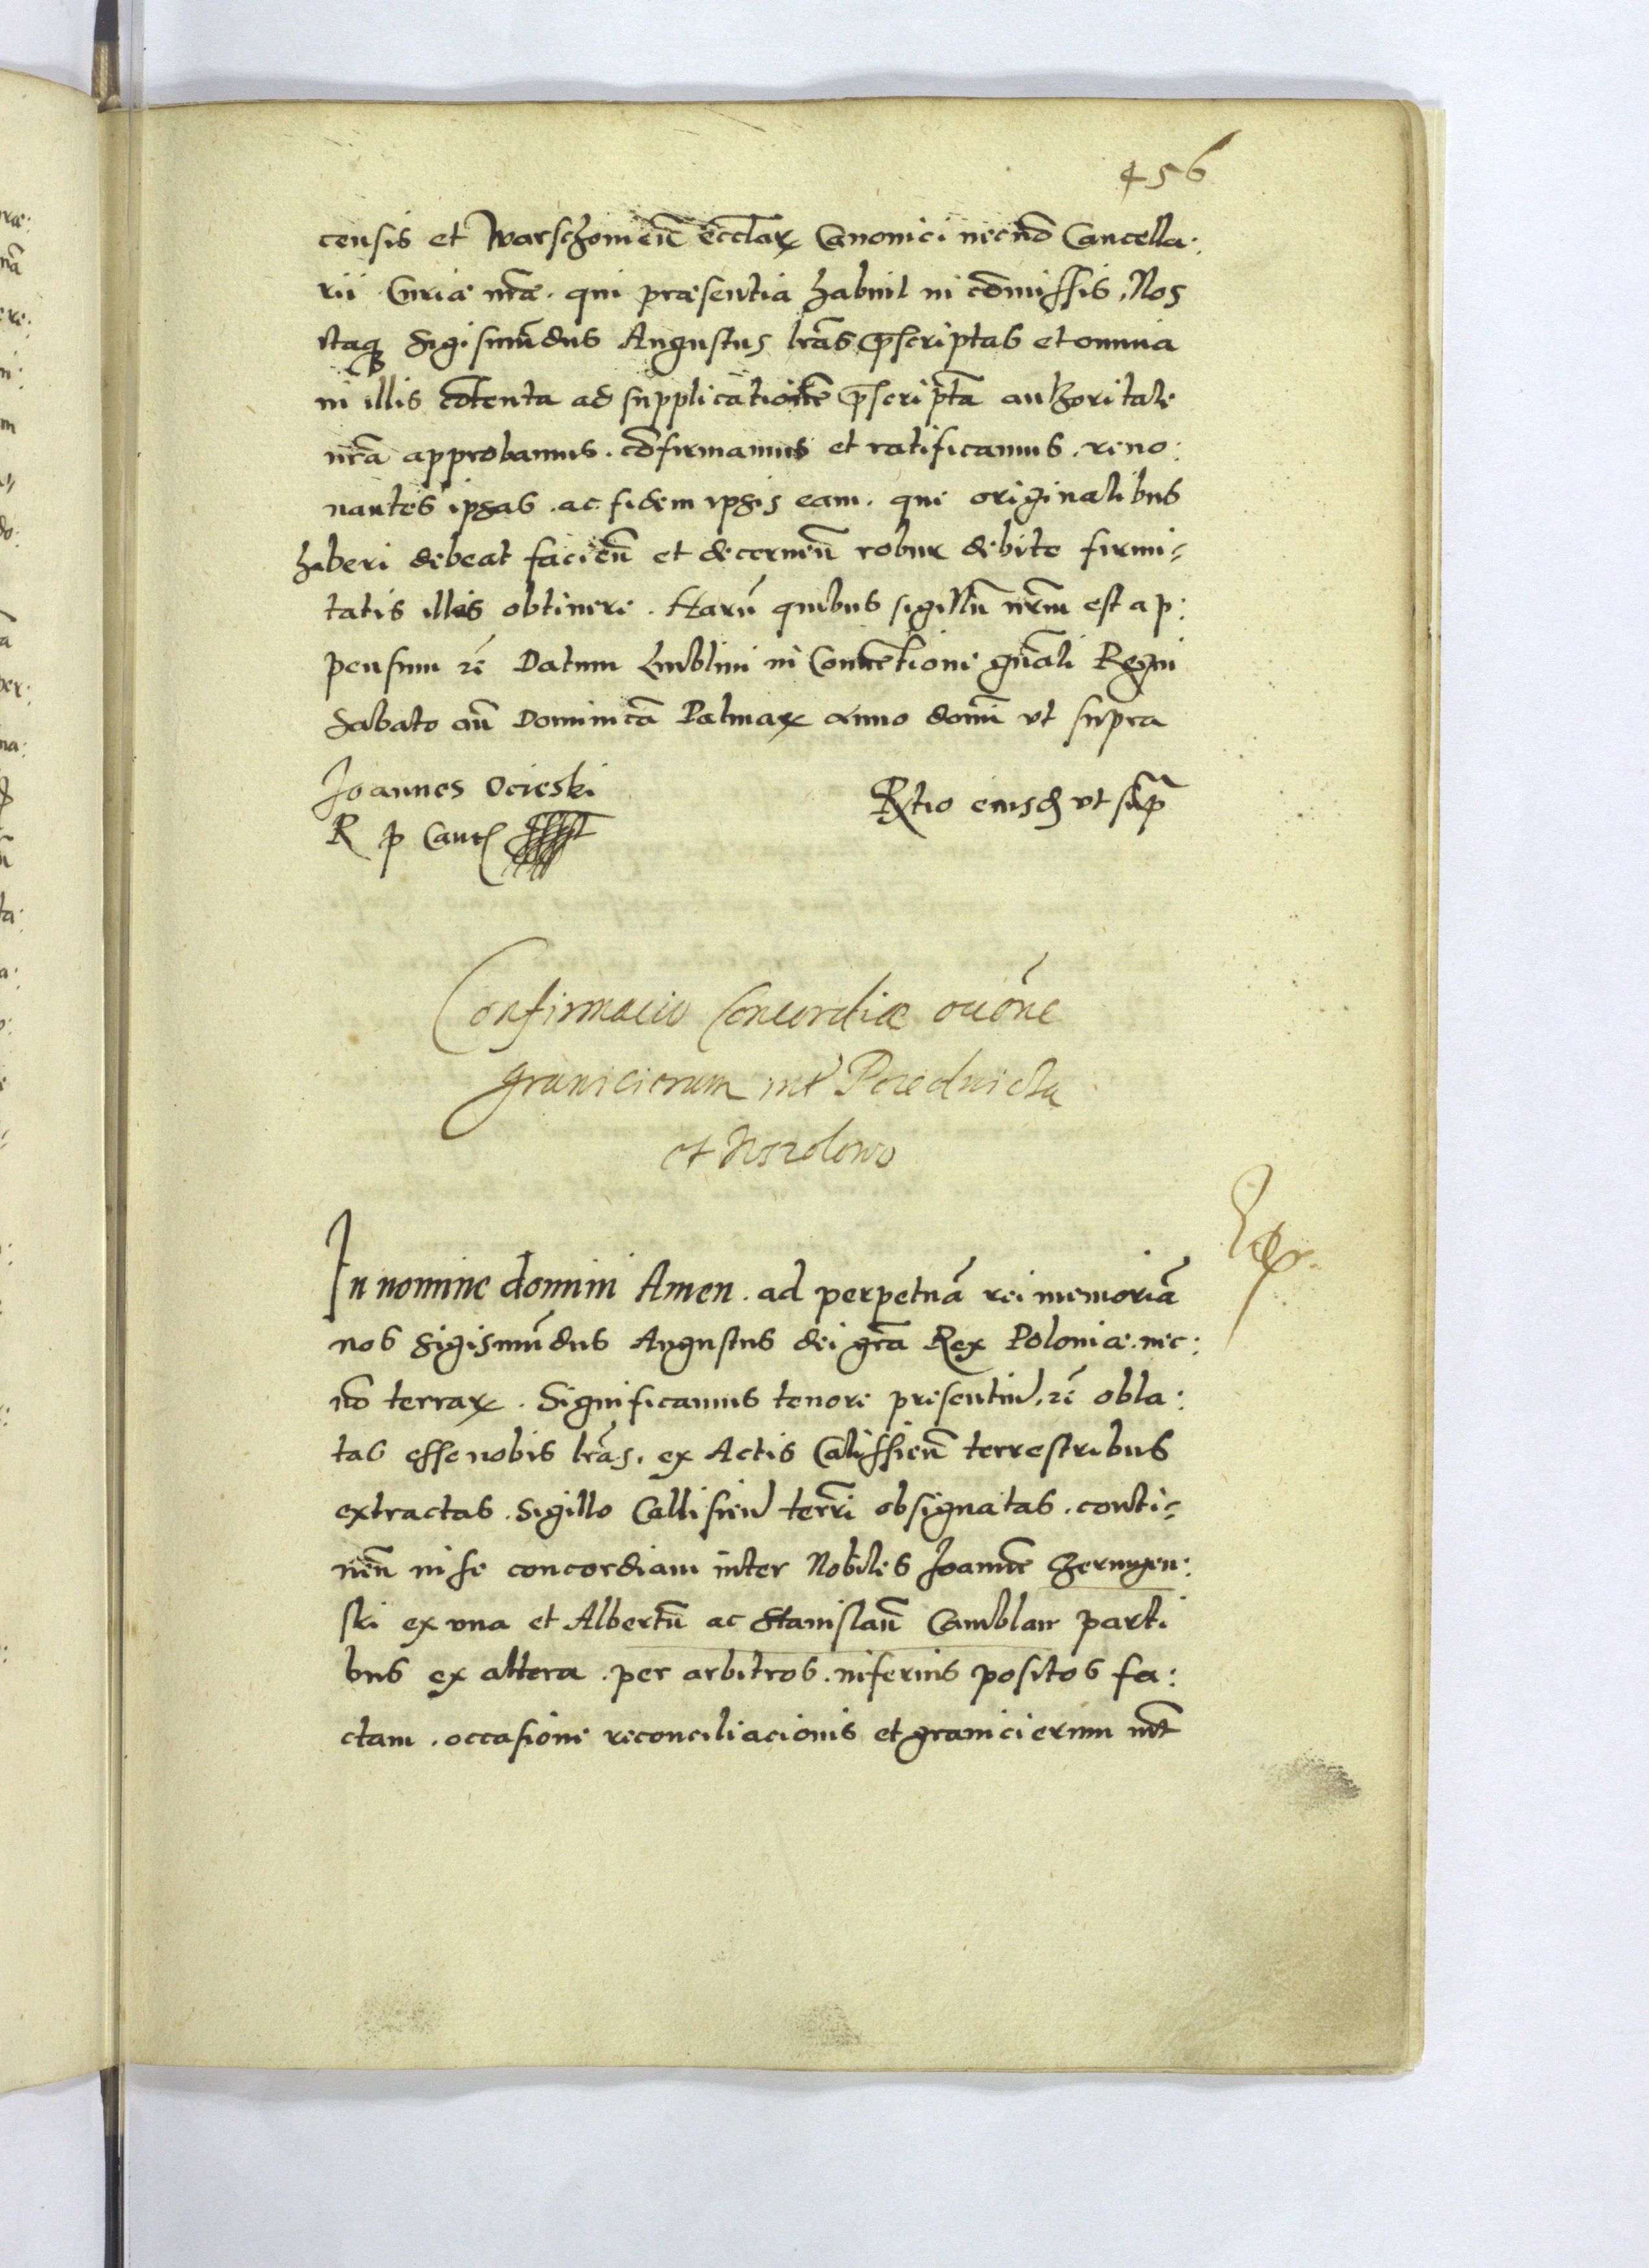 456
censis et Warschoviēn ecclāꝝ Canonici necnō Cancella:
rii Curiæ nr̃æ. qui præsentia habuit in cōmissis, Nos
itaqꝫ Sigismūdus Augustus lr̃as p̄scriptas et omnia
in illis cōtenta ad supplicationē p̄scriptā authoritate
nr̃a approbamus. cōfirmamus et ratificamus. reno:
uantes ipsas. ac fidem ipsis eam. que originalibus
haberi debeat facieñ et decerneñ robur debite firmi-
tatis illis obtinere. Harū quibus sigillū nr̃m est ap:
pensum ꝛc̃ Datum Lublini in Conuētione gñali Regni
Sabato añ Dominicā Palmaꝝ Anno domī vt supra
Joannes Ocieski
R P Cancꝭ
Rltio eiusd vt sup̃
Confirmacio Concordiæ occōne
granicierum int̃
et
In nomine domini Amen. ad perpetuā rei memoriā
nos Sigismūdus Augustus dei gr̃a Rex Poloniæ. nec:
nō terraꝝ. Significamus tenore presentiū. ꝛc̃ obla:
tas esse nobis lr̃as. ex Actis Calissieñ terrestribus
extractas. Sigillo Callisieñ terr̃i obsignatas. conti-
neñ in se concordiam inter Nobiles Joannē Czernyen:
ski ex vna et Albertū ac Stanislaū Camblan parti
bus ex altera. per arbitros. inferius positos fa:
ctam. occasione reconciliacionis et granicierum int̃